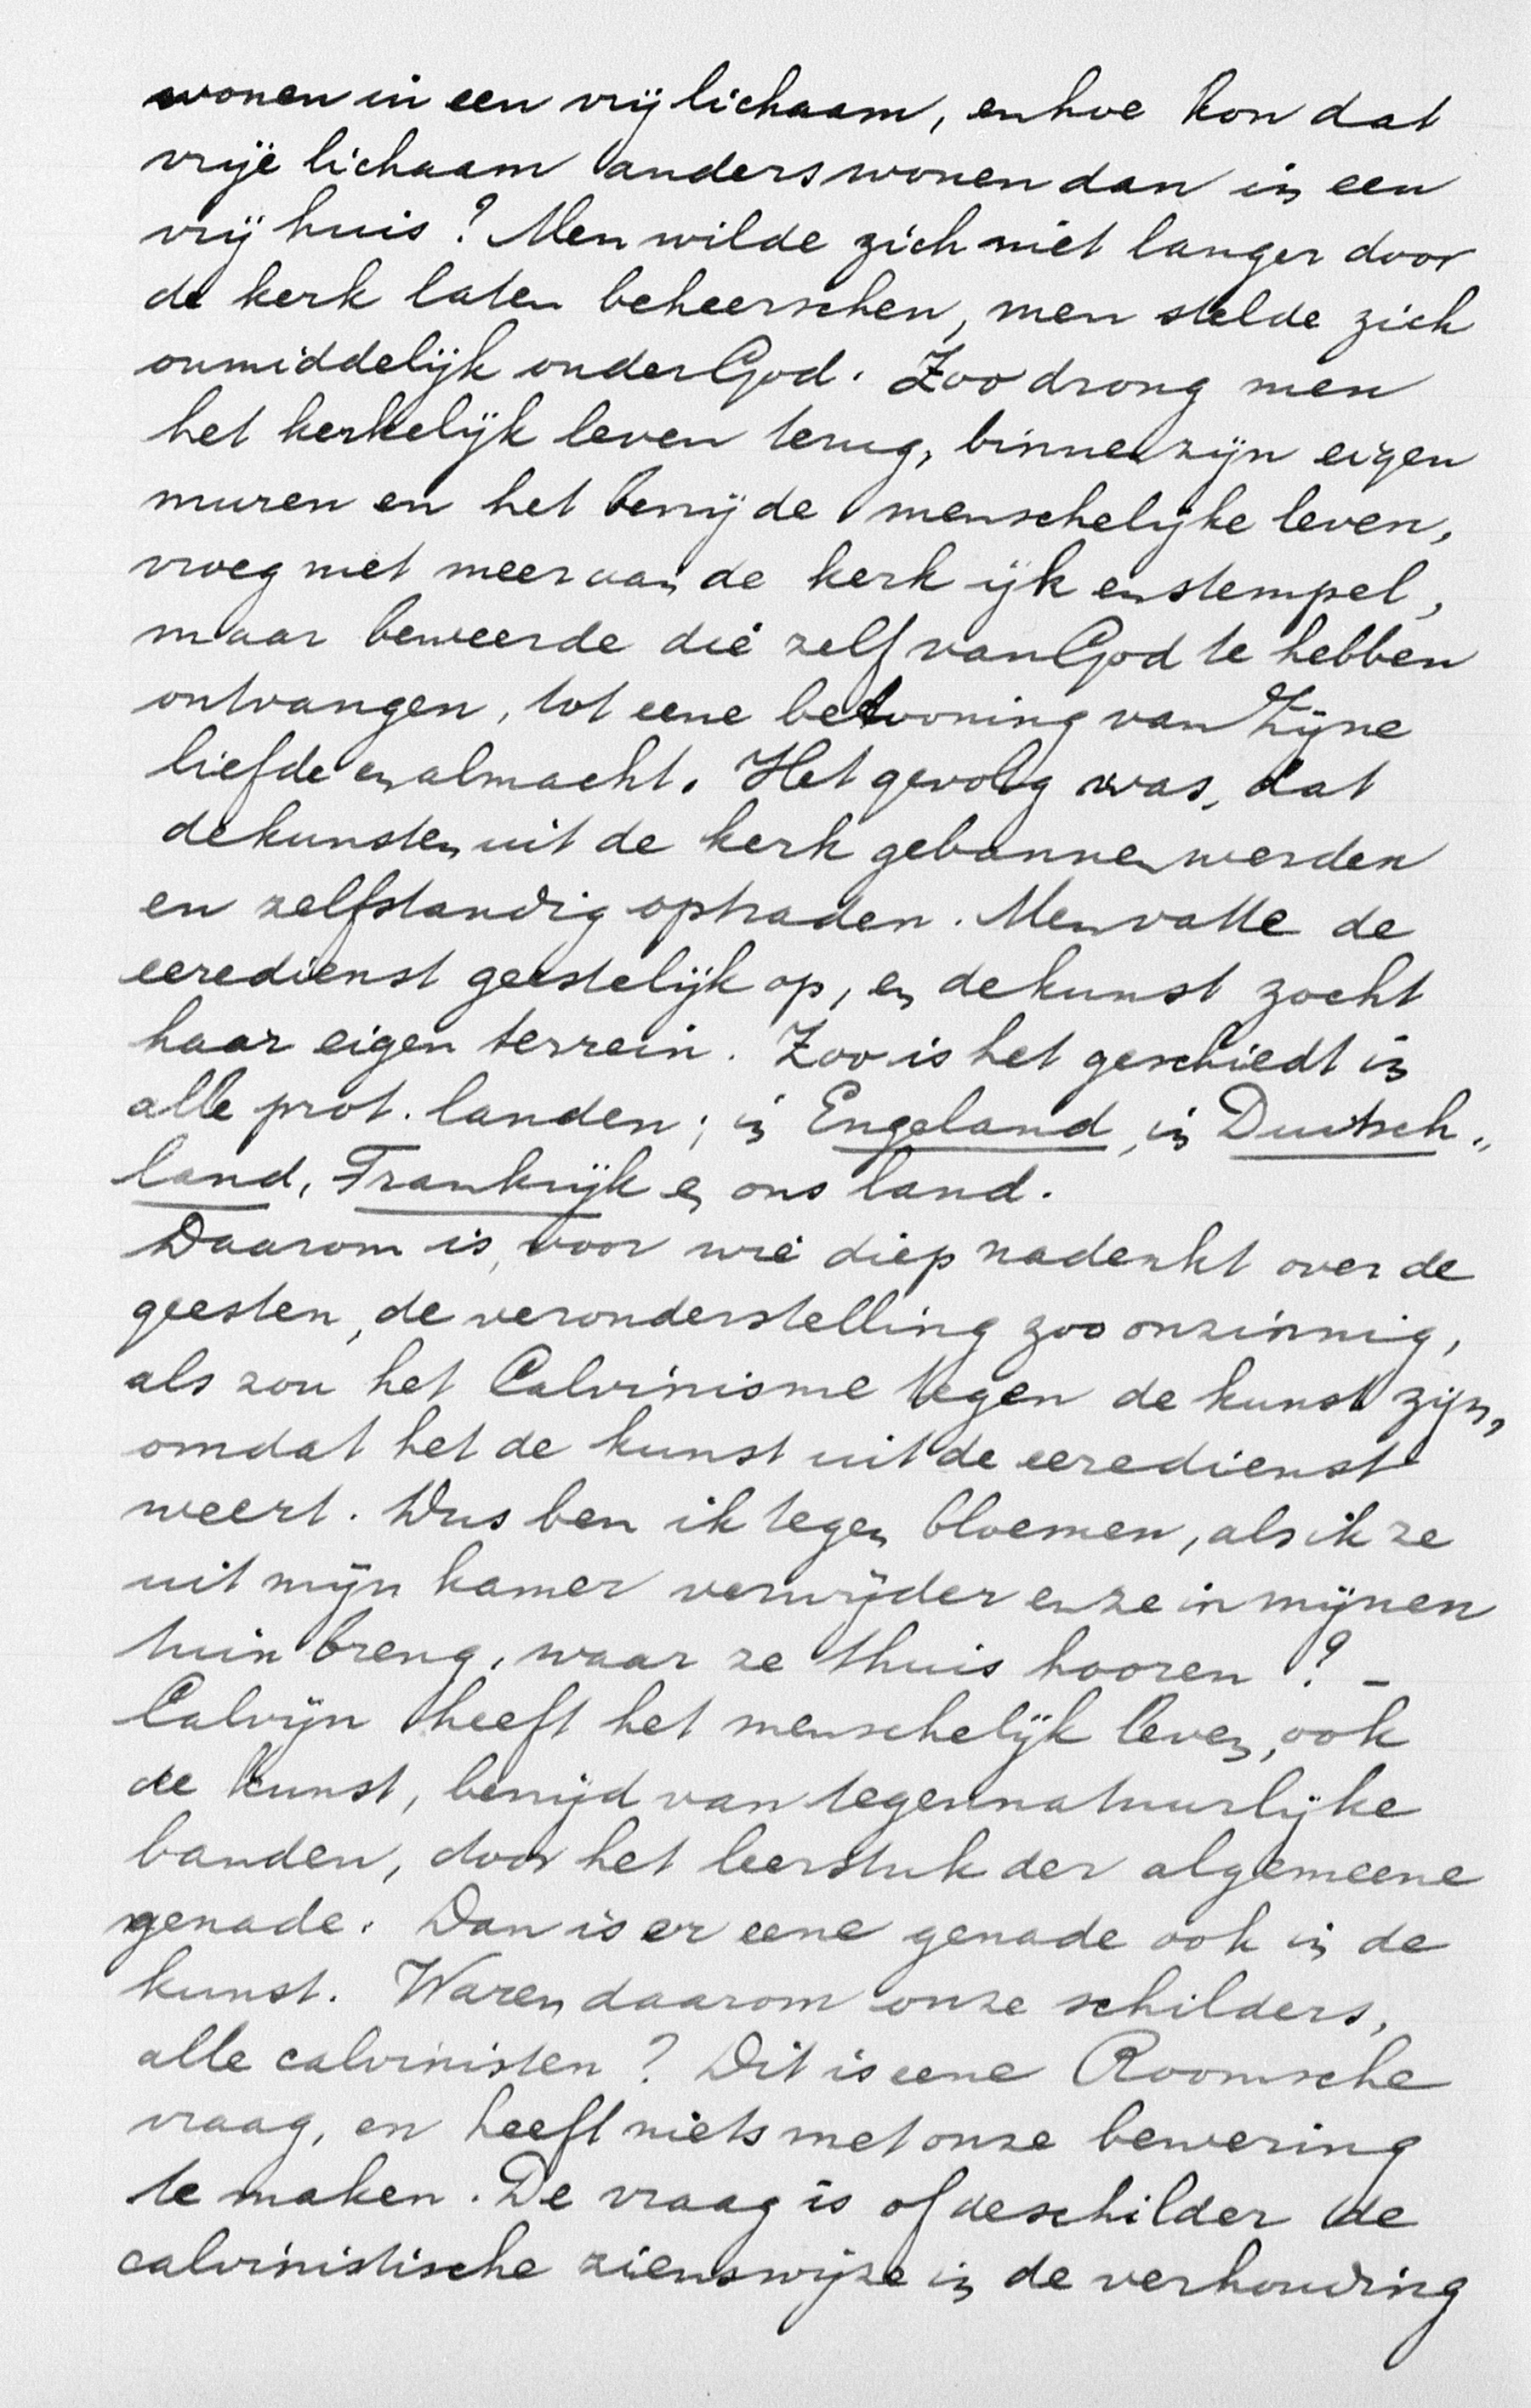 wonen in een vrij lichaam, en hoe kon dat
vrije lichaam anders wonen dan in een
vrij huis? Men wilde zich niet langer door
de kerk laten beheerschen, men stelde zich
onmiddelijk onder God. Zoo drong men
het kerkelijk leven terug, binnen zijn eigen
muren en het bevrijde menschelijke leven,
vroeg niet meer aan de kerk ijk en stempel,
maar beweerde die zelf van God te hebben
ontvangen, tot eene betooning van Zijne
liefde en almacht. Het gevolg was, dat
de kunsten uit de kerk gebannen werden
en zelfstandig optraden. Men vatte de
eeredienst geestelijk op, en de kunst zocht
haar eigen terrein. Zoo is het geschiedt in
alle prot. landen; in Engeland, in Duitsch„
land, Frankrijk en ons land.
Daarom is, voor wie diep nadenkt over de
geesten, de veronderstelling zoo onzinnig,
als zou het Calvinisme tegen de kunst zijn,
omdat het de kunst uit de eeredienst
weert. Dus ben ik tegen bloemen, als ik ze
uit mijn kamer verwijder en ze in mijnen
tuin breng, waar ze thuis hooren? –
Calvijn heeft het menschelijk leven, ook
de kunst, bevrijd van tegennatuurlijke
banden, door het leerstuk der algemeene
genade. Dan is er eene genade ook in de
kunst. Waren daarom onze schilders,
alle calvinisten? Dit is eene Roomsche
vraag, en heeft niets met onze bewering
te maken. De vraag is of de schilder de
calvinistische zienswijze in de verhouding